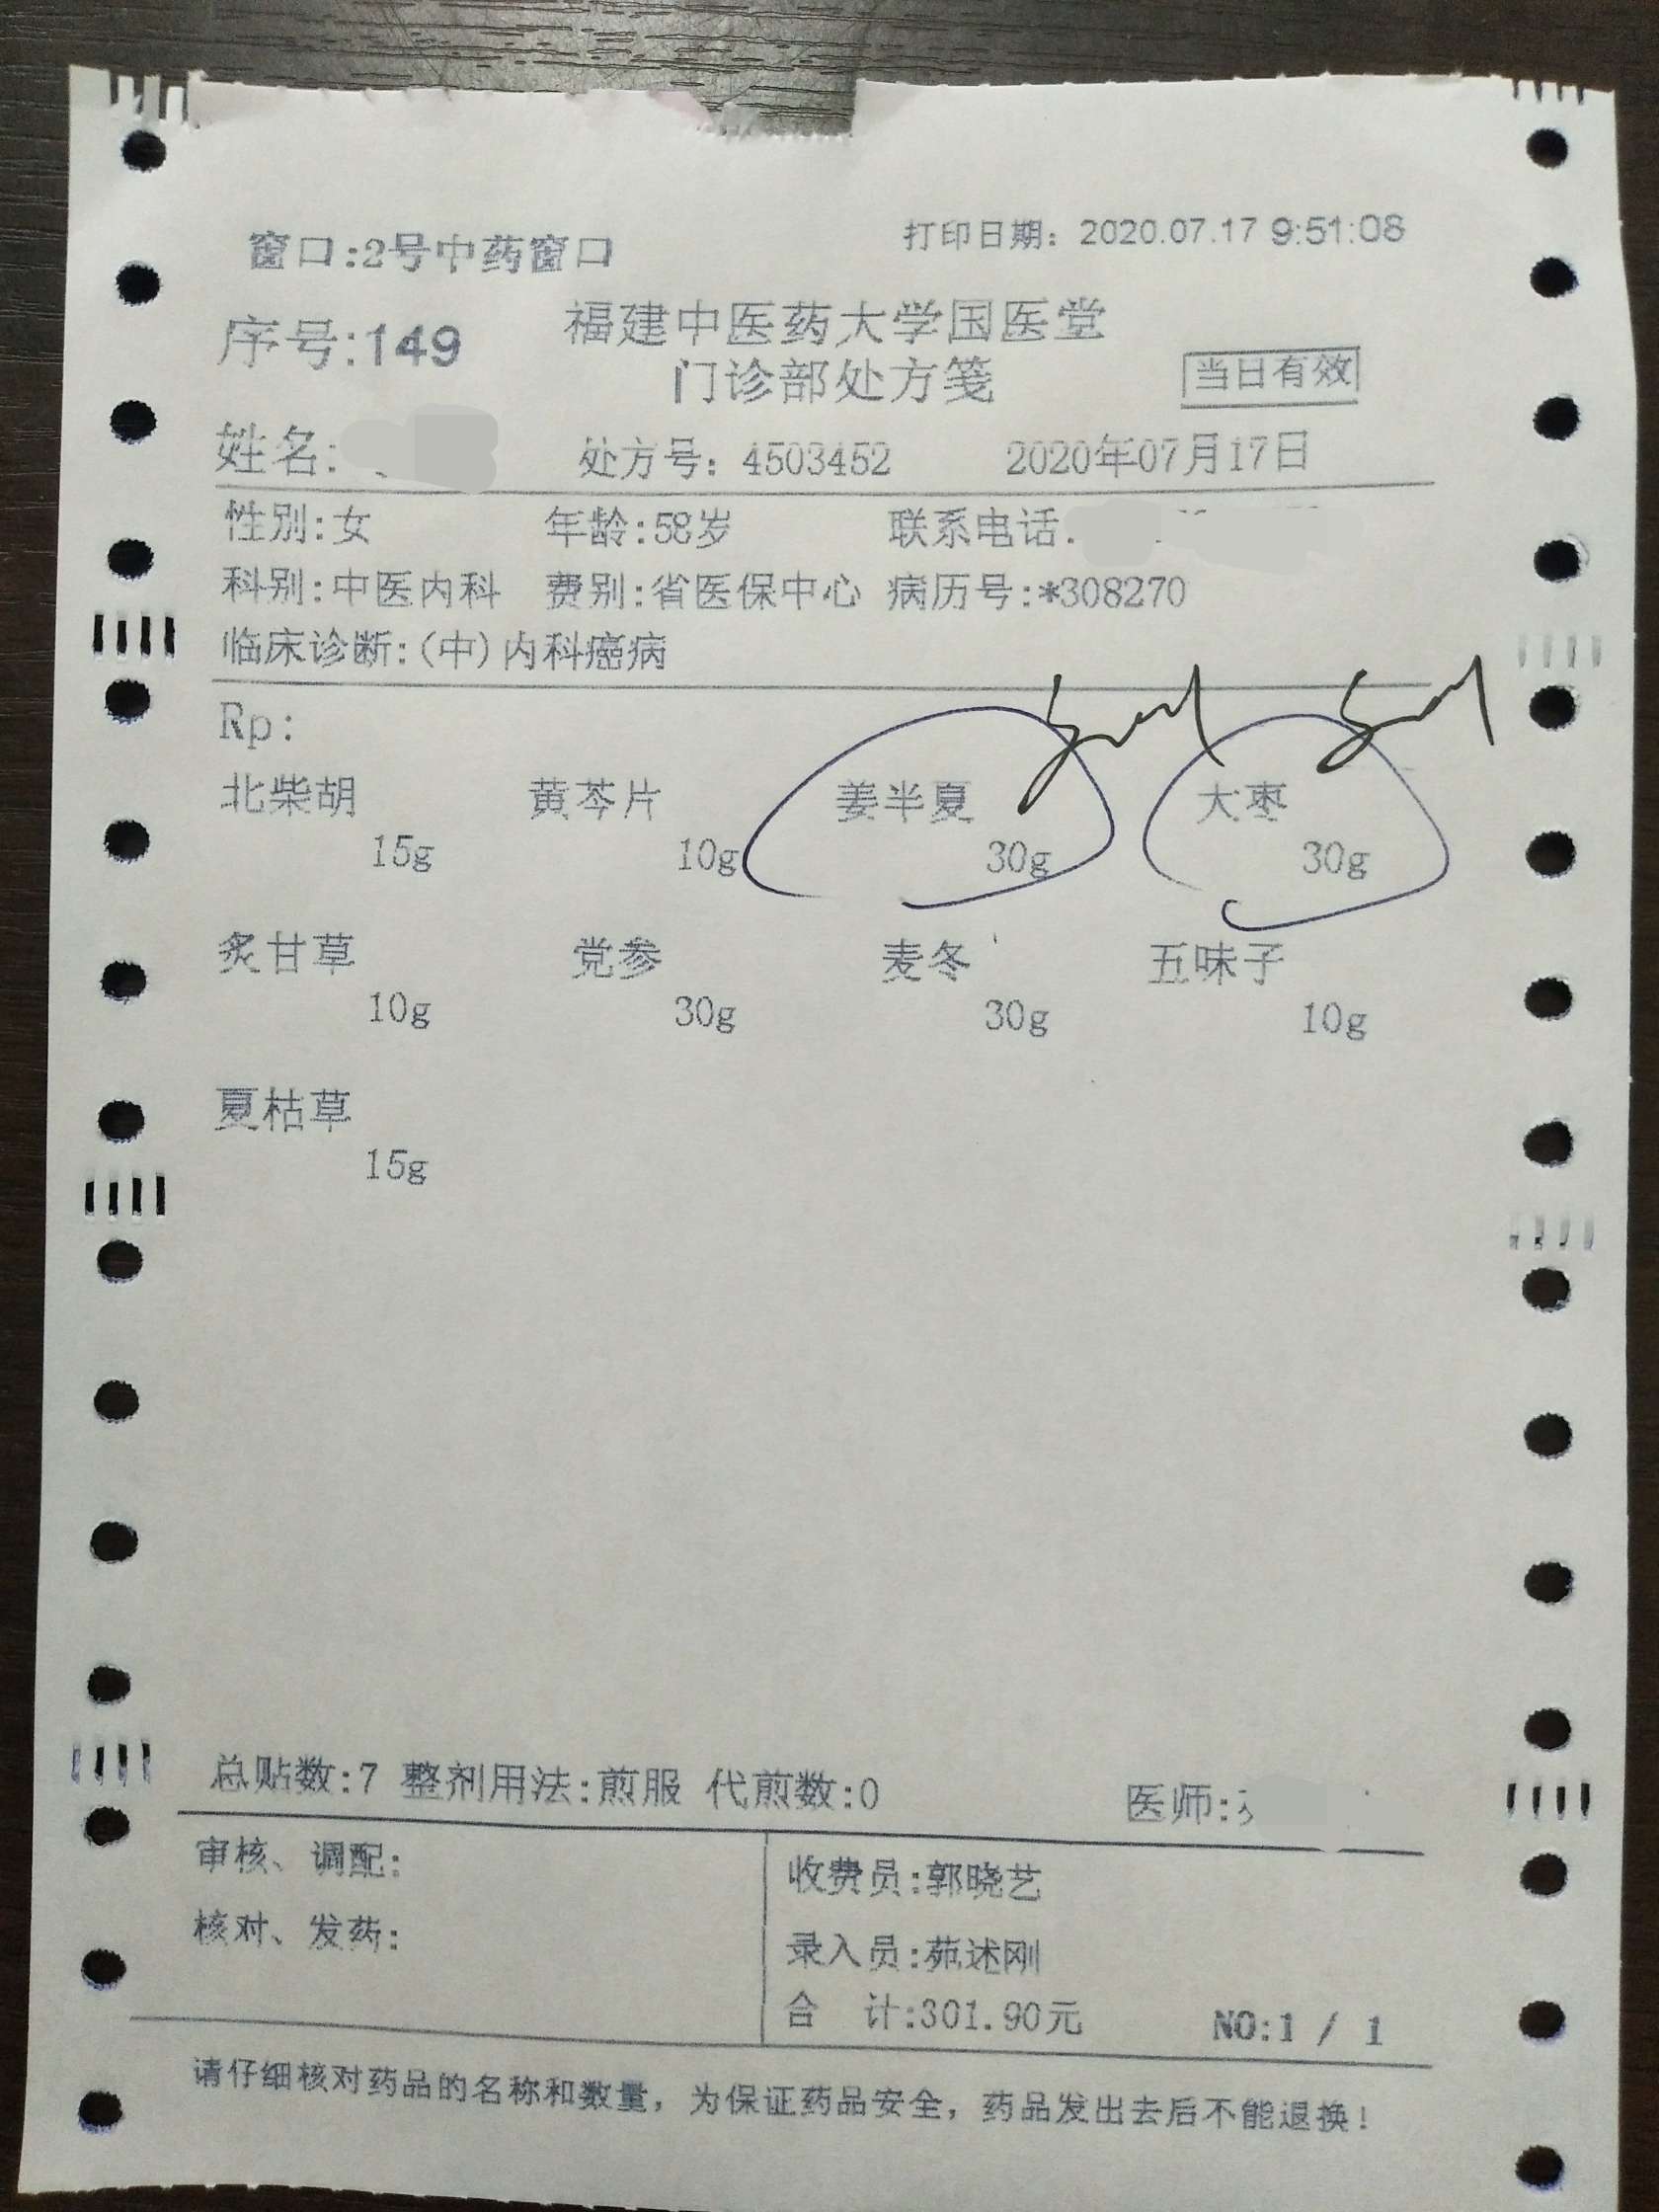 窗口:2号中药窗口
打印日期: 2020.07.17 9:51:08
序号:149
福建中医药大学国医堂
门诊部处方笺
当日有效
姓名:
处方号: 4503452
2020年07月17日
性别:女 年龄:58岁 联系电话
科别:中医内科 费别:省医保中心 病历号:*308270
临床诊断:(中)内科癌病
Rp:
北柴胡 黄芩片 姜半夏 大枣
15g 10g 30g 30g
炙甘草 党参 麦冬 五味子
10g 30g 30g 10g
夏枯草
15g
总贴数:7 整剂用法:煎服 代煎数:0 医师:
审核、调配:
收费员:郭晓艺
核对、发药:
录入员:苑述刚
合 计:301.90元
NO:1 / 1
请仔细核对药品的名称和数量，为保证药品安全，药品发出去后不能退换!